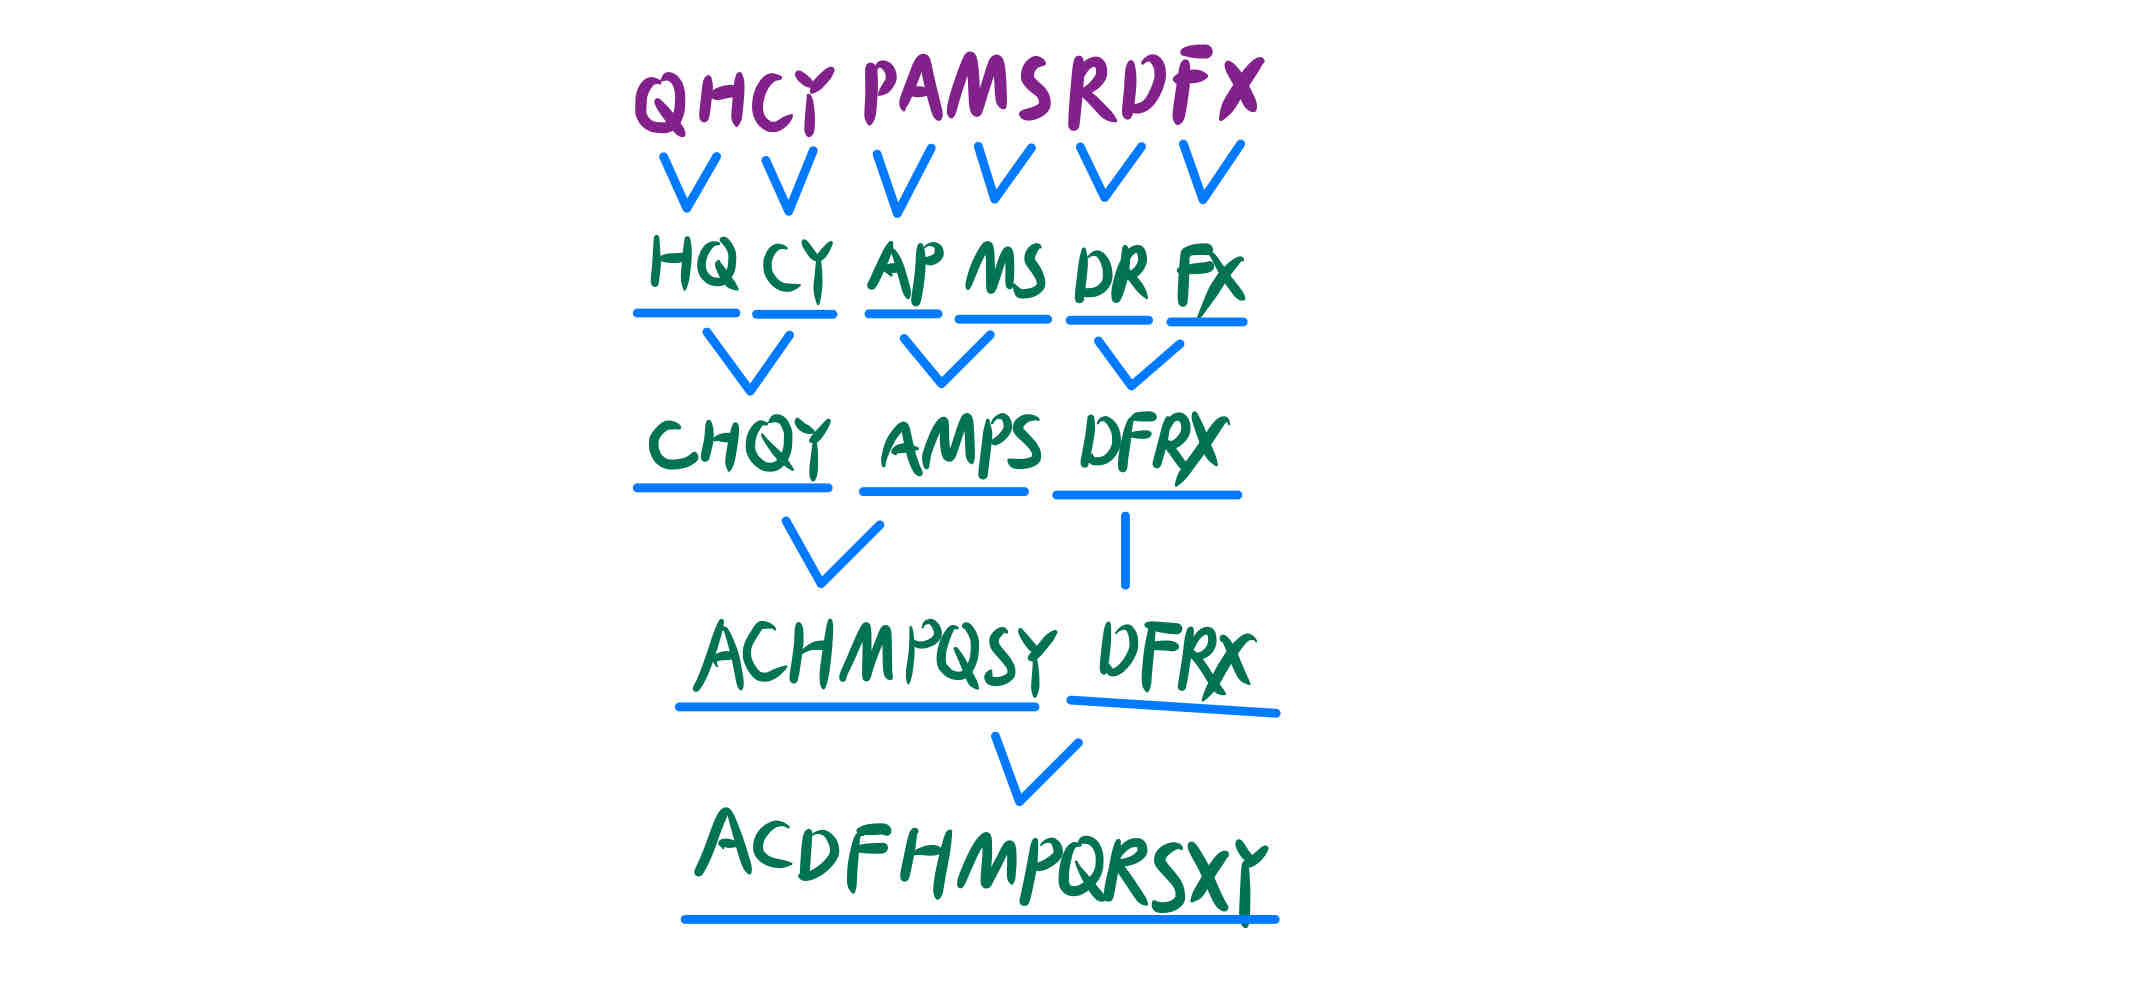 QHCY PAMS RDFX
HQ CY AP MS DR FX
CHQY AMPS DFRX
ACHMPQSY DFRX
ACDFHMPQRSXY